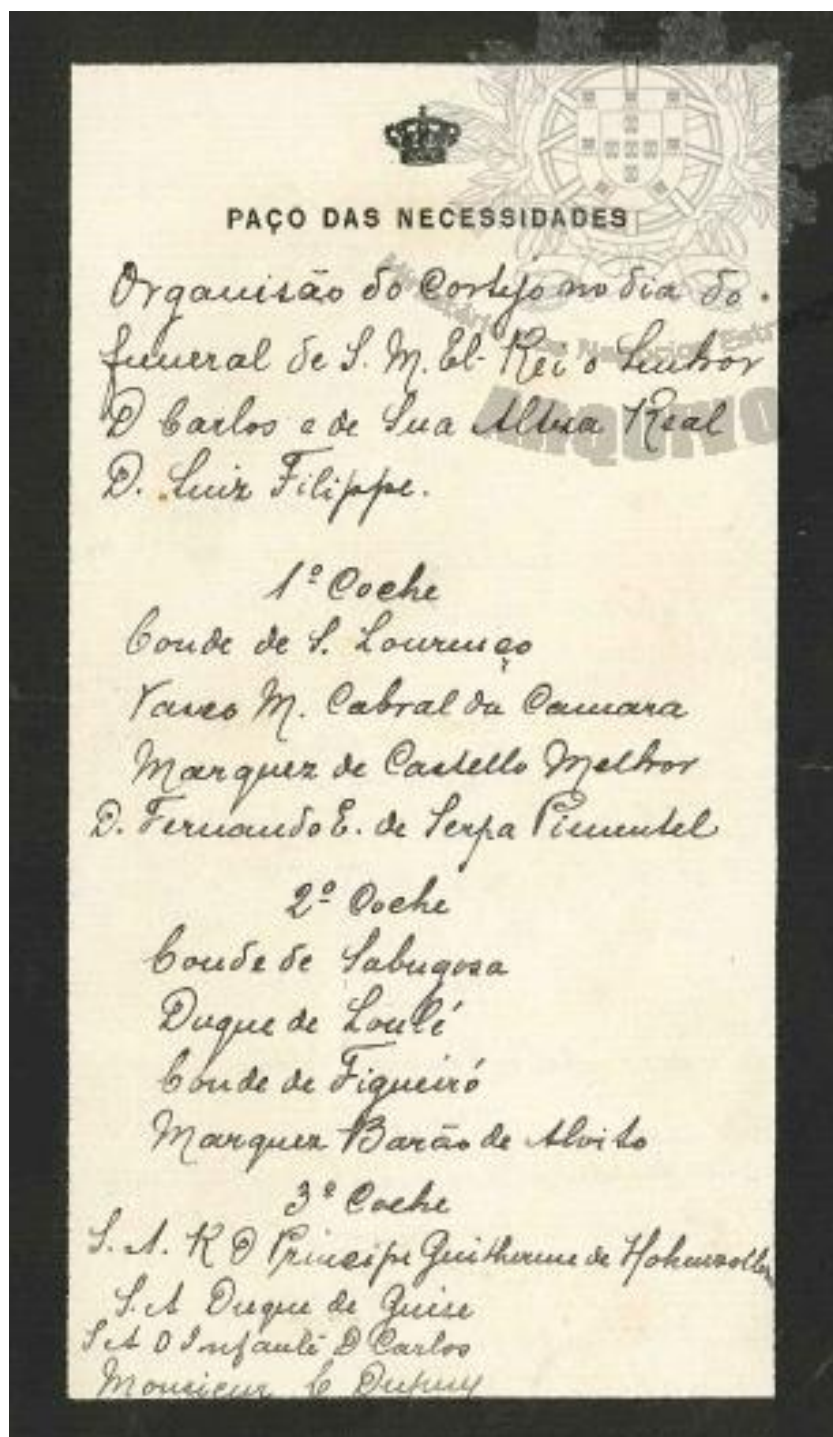 PAÇO DAS NECESSIDADES
Organisão do Cortejo no dia do
funeral de S. M. El-Rei o Senhor
D Carlos e de Sua Altesa Real
D. Luiz Filippe.
1º Coche
Conde de S. Lourenço
Vasco M. Cabral da Camara
Marquez de Castello Melhor
D. Fernando E. de Serpa Pimentel
2º Coche
Conde de Sabugosa
Duque de Loulé
Conde de Figueiró
Marquez Barão de Alvito
3º Coche
S. A. R O Principe Guilherme de Hohenzollern
S. A Duque de Guise
S A O Infante D Carlos
Monsieur C Dupuy
ARQUIVO